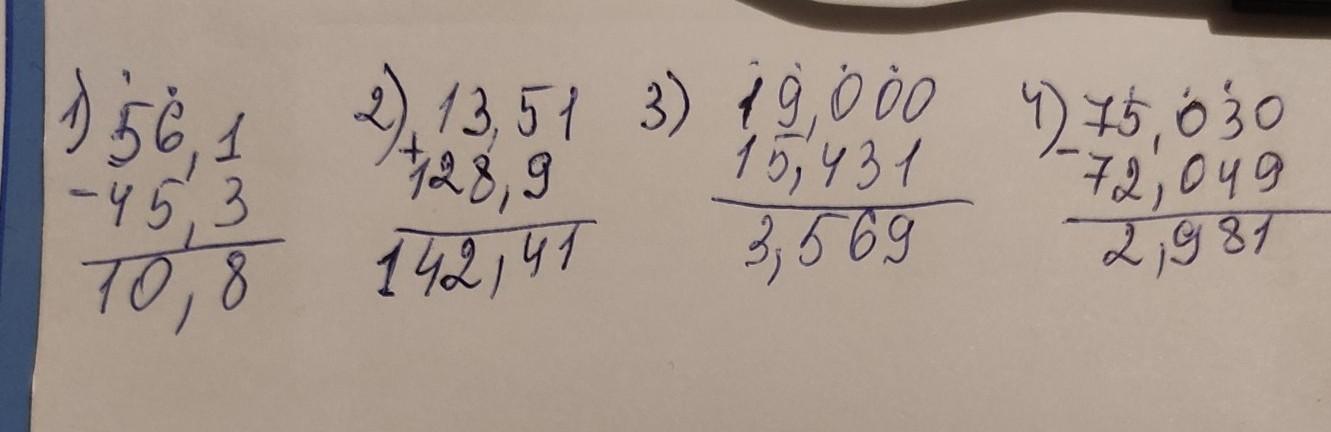 1) 56,1 2) 13,51 3) 19,000 4) 75,030
- 45,3 + 128,9 15,431 - 72,049
10,8 142,41 3,569 2,981